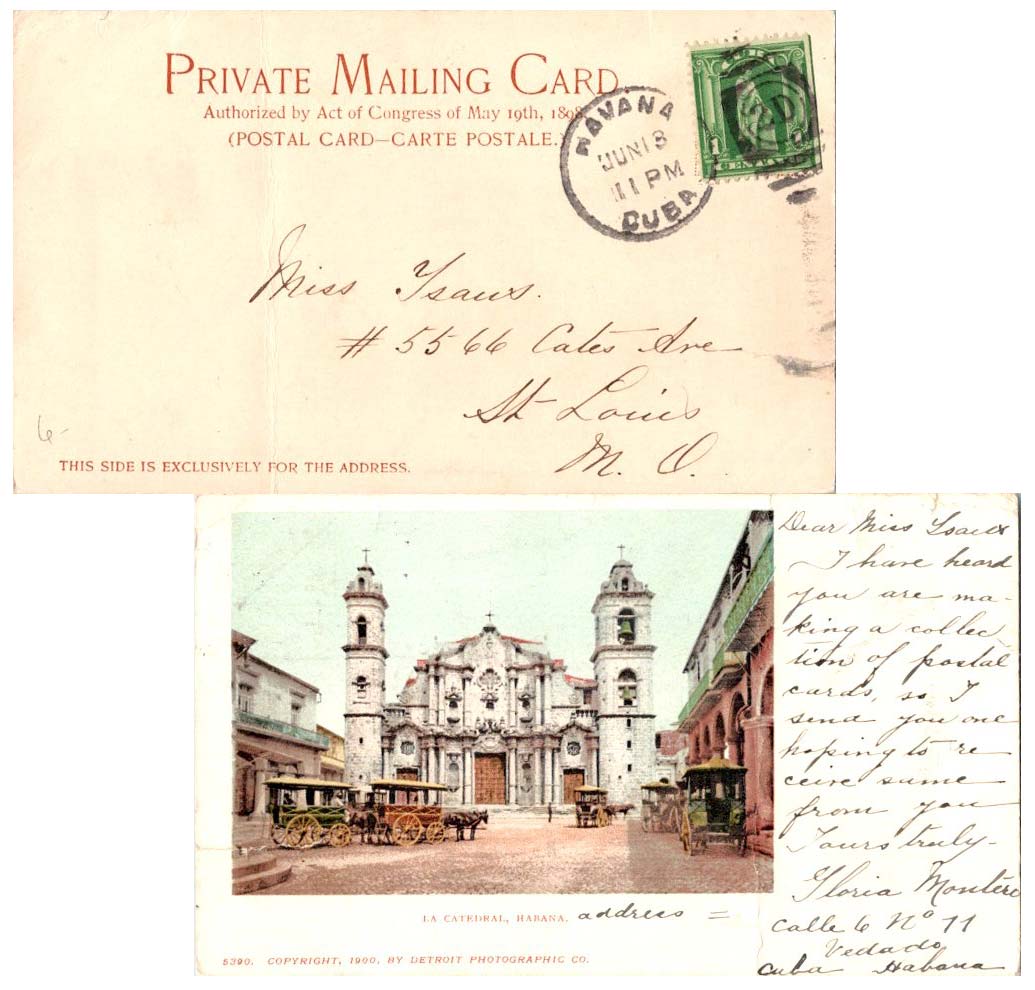 PRIVATE MAILING CARD
Authorized by Act of Congress of May 19th, 1898.
(POSTAL CARD—CARTE POSTALE.)
HAVANA
JUN 18
11 PM
CUBA
1
Miss Isaacs.
# 5566 Cates Ave
St Louis
M. O.
6-
THIS SIDE IS EXCLUSIVELY FOR THE ADDRESS.
Dear Miss Isaacs
I have heard
you are ma-
king a collec
tion of postal
cards, so I
send you one
hoping to re
ceive same
from you
Yours truly-
Gloria Montero
calle 6 No 11
Vedado
Cuba Habana
LA CATEDRAL, HABANA. address =
5390. COPYRIGHT, 1900, BY DETROIT PHOTOGRAPHIC CO.